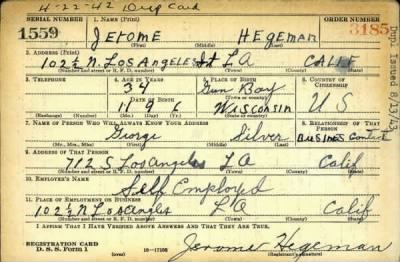 4-22-42 Dup Card
SERIAL NUMBER 1. NAME (Print) ORDER NUMBER
1559 JEROME HEGEMAN 3185
(First) (Middle) (Last)
2. ADDRESS (Print)
102½ N. LOS ANGELES St LA CALIF
(Number and street or R. F. D. number) (Town) (County) (State)
3. TELEPHONE 4. AGE IN YEARS 5. PLACE OF BIRTH 6. COUNTRY OF CITIZENSHIP
34 Gun Bay
DATE OF BIRTH (Town or county)
11 9 6 Wisconsin U S
(Exchange) (Number) (Mo.) (Day) (Yr.) (State or country)
7. NAME OF PERSON WHO WILL ALWAYS KNOW YOUR ADDRESS 8. RELATIONSHIP OF THAT PERSON
George Silver Business Contact
(Mr., Mrs., Miss) (First) (Middle) (Last)
9. ADDRESS OF THAT PERSON
712 S Los Angeles LA Calif
(Number and street or R. F. D. number) (Town) (County) (State)
10. EMPLOYER'S NAME
Self Employed
11. PLACE OF EMPLOYMENT OR BUSINESS
102½ N Los Angeles LA Calif
(Number and street or R. F. D. number) (Town) (County) (State)
I AFFIRM THAT I HAVE VERIFIED ABOVE ANSWERS AND THAT THEY ARE TRUE.
REGISTRATION CARD
D. S. S. Form 1 16-17105 Jerome Hegeman
Dup. Issued 8/13/43